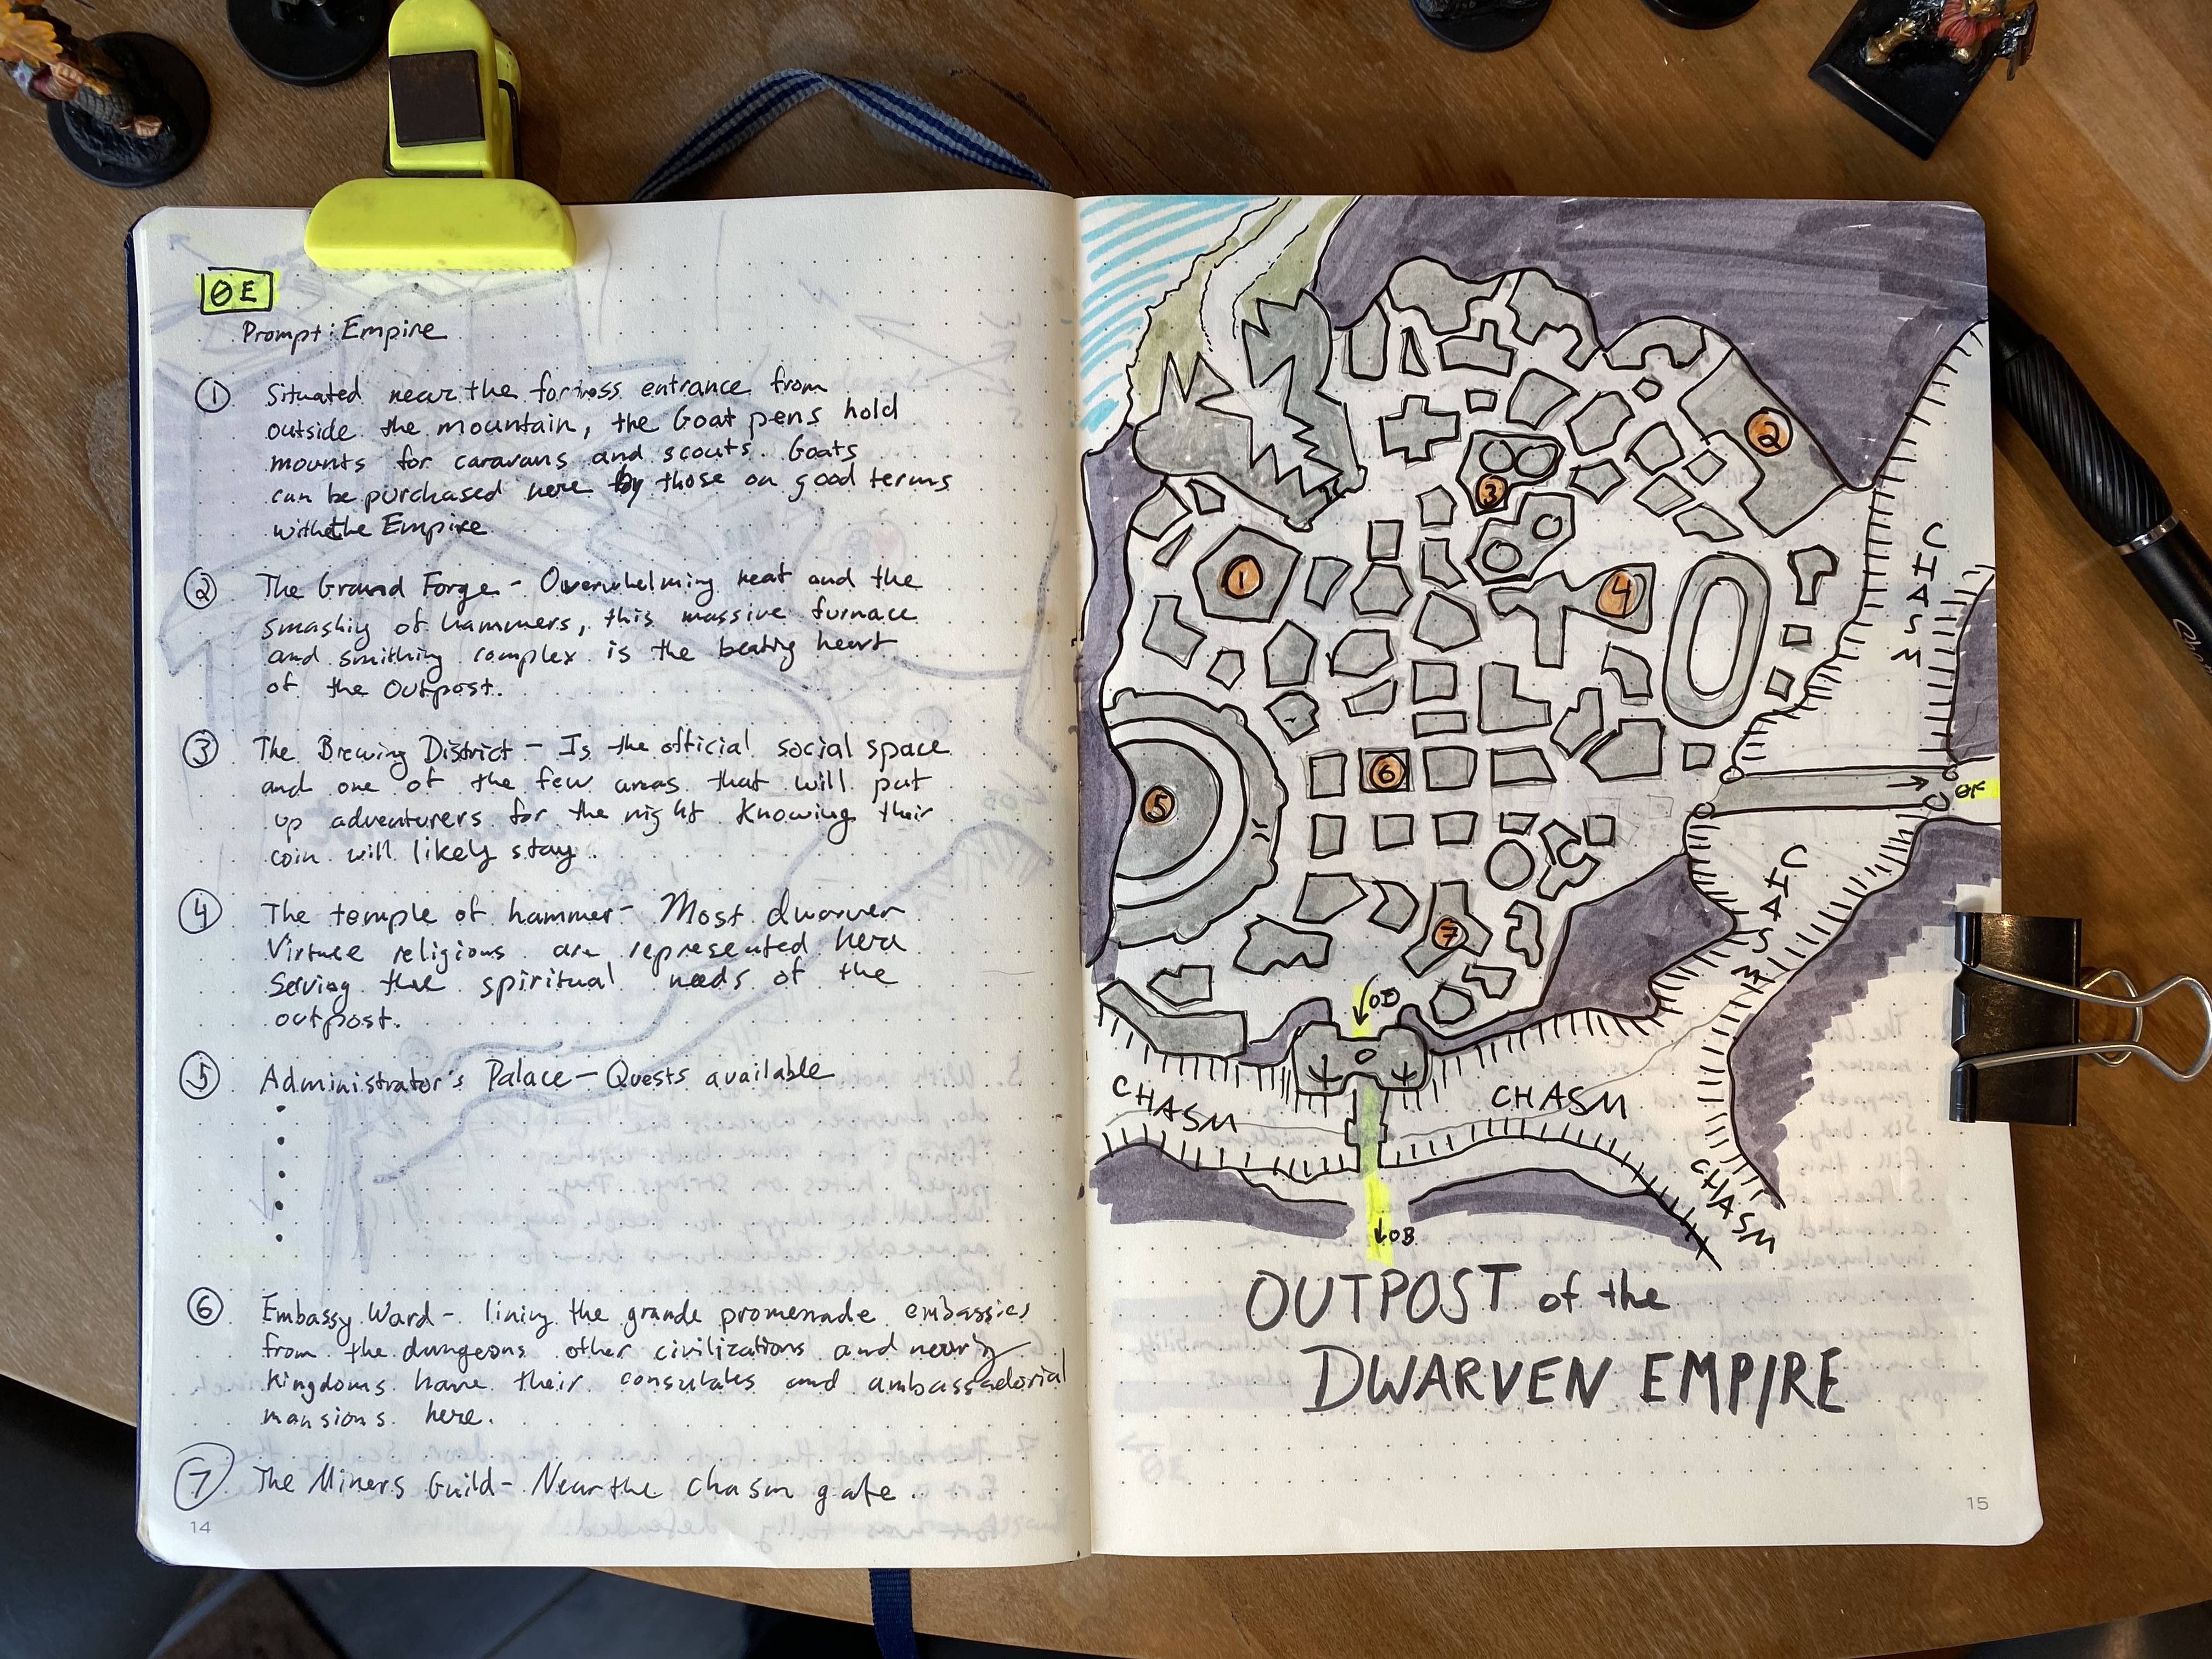 ØE
Prompt: Empire
1 Situated near the fortress entrance from
outside the mountain, the Goat pens hold
mounts for caravans and scouts. Goats
can be purchased here by those on good terms
with the Empire
2 The Grand Forge - Overwhelming heat and the
smashig of hammers, this massive furnace
and smithing complex is the beatig heart
of the Outpost.
3 The Brewing District - Is the official social space
and one of the few areas that will put
up adventurers for the night knowing their
coin will likely stay.
4 The temple of hammer - Most dwarven
Virtue religions are represented here
Serving the spiritual needs of the
outpost.
5 Administrator's Palace - Quests available
6 Embassy Ward - lining the grande promenade embassies
from the dungeons other civilizations and nearby
kingdoms have their consulates and ambassadorial
mansions here.
7 The Miners Guild - Near the chasm gate.
14
2
3
1
4
CHASM
6
5
CHASM
7
CHASM
CHASM
CHASM
↓OB
OUTPOST of the
DWARVEN EMPIRE
15